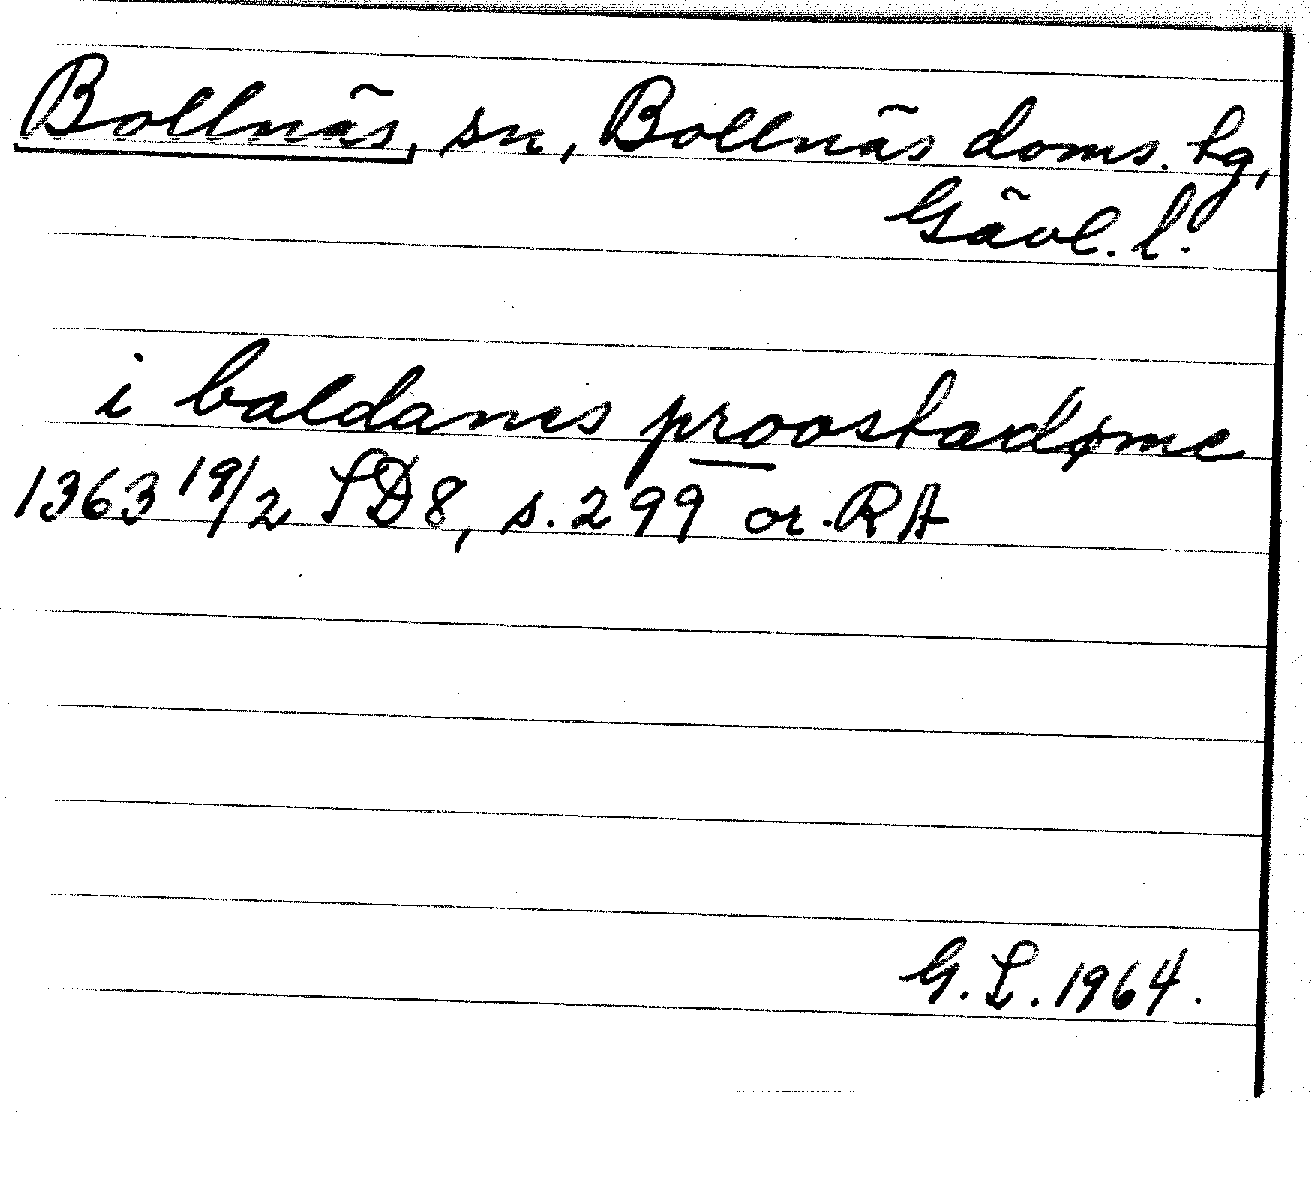 Bollnäs, sn, Bollnäs doms. tg,
Gävl. l.
i baldanes proostadøme
1363 19/2 SD 8, s. 299 or. RA
G. S. 1964.